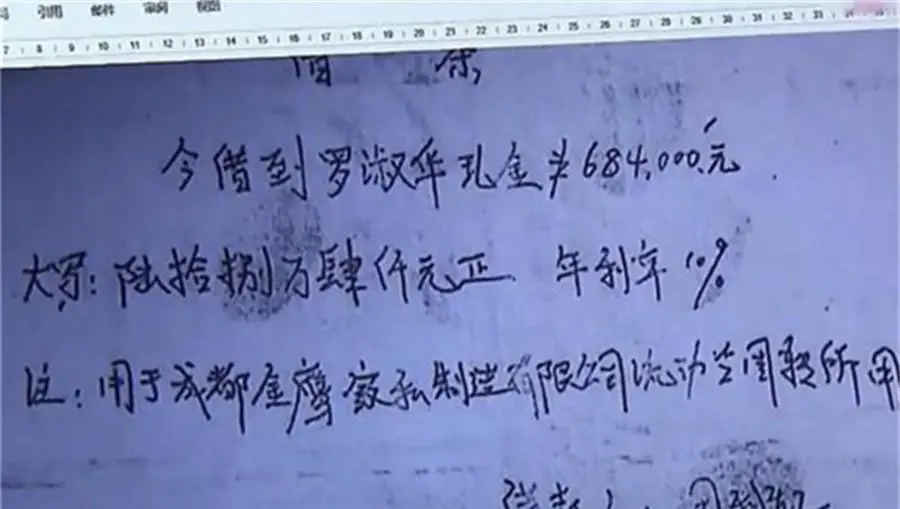 引用 邮件 审阅 视图
7 8 9 10 11 12 13 14 15 16 17 18 19 20 21 22 23 24 25 26 27 28 29 30 31 32 33 34 35
借 条
今借到罗淑华现金为684,000元
大写：陆拾捌万肆仟元正 年利率10%
注：用于成都金鹰家私制造有限公司流动金周转所用